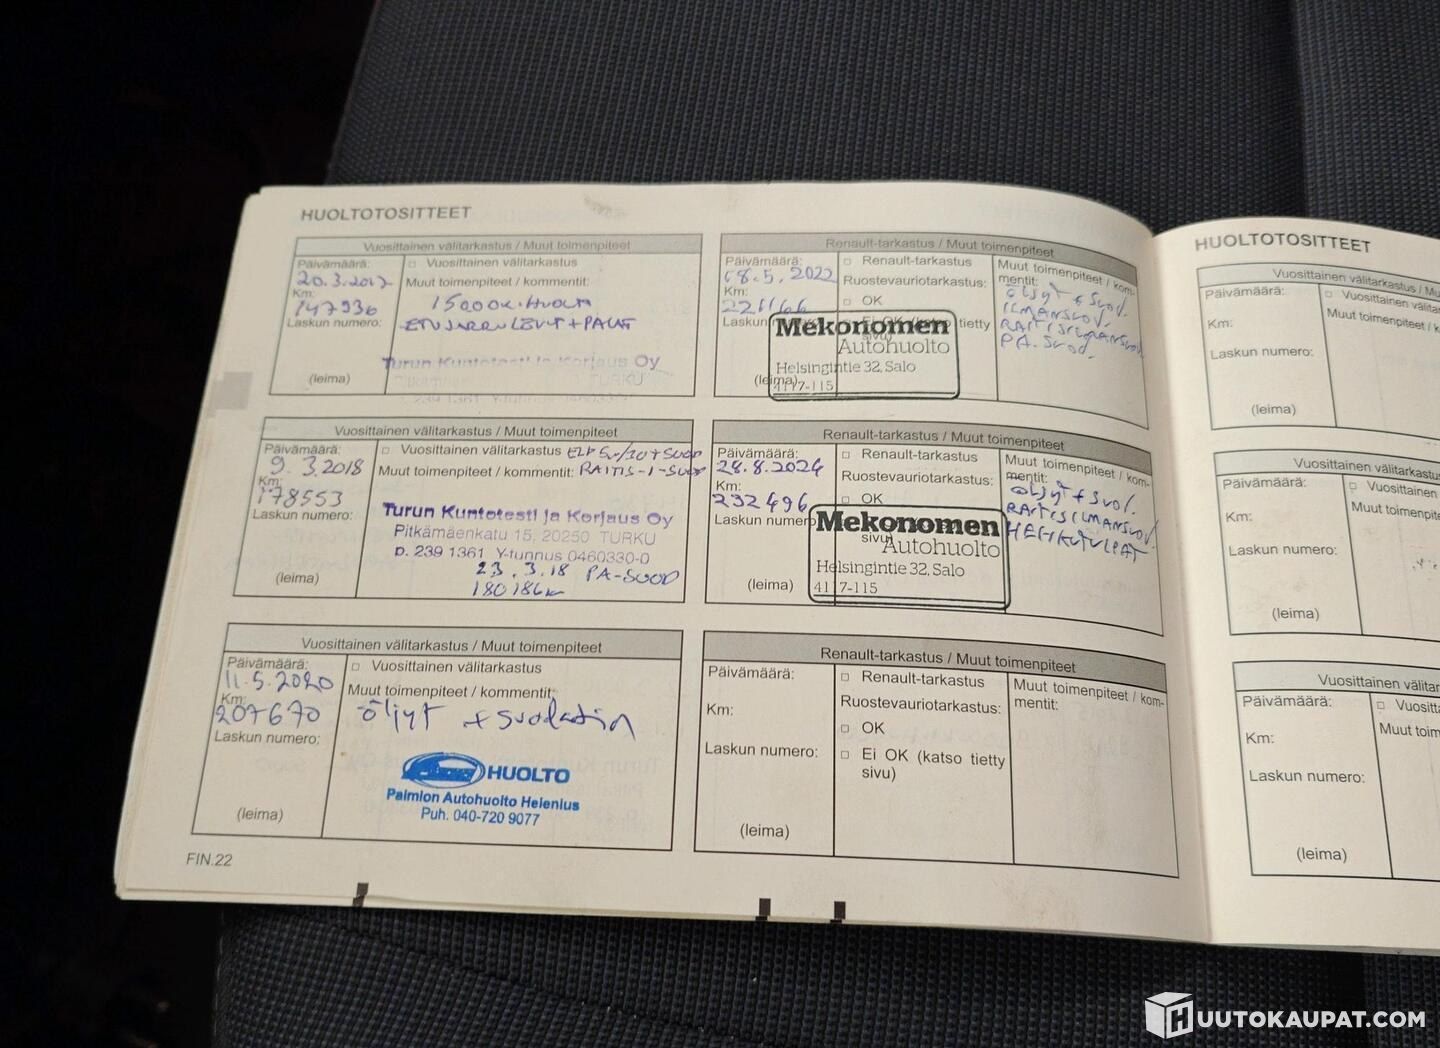 HUOLTOTOSITTEET
Vuosittainen välitarkastus / Muut toimenpiteet
Päivämäärä:
20.3.2017
Km:
147936
Laskun numero:
(leima)
□ Vuosittainen välitarkastus
Muut toimenpiteet / kommentit:
15000K.HUOLTO
ETUJARRULEVYT+PALAT
Turun Kuntotesti ja Korjaus Oy
TURKU
239 1361
Vuosittainen välitarkastus / Muut toimenpiteet
Päivämäärä:
9.3.2018
Km:
178553
Laskun numero:
(leima)
□ Vuosittainen välitarkastus
Muut toimenpiteet / kommentit: RAITIS-I-SUOD
Turun Kuntotesti ja Korjaus Oy
Pitkämäenkatu 15, 20250 TURKU
p. 239 1361 Y-tunnus 0460330-0
23.3.18 PA-SUOD
180186km
Vuosittainen välitarkastus / Muut toimenpiteet
Päivämäärä:
11.5.2020
Km:
207670
Laskun numero:
(leima)
□ Vuosittainen välitarkastus
Muut toimenpiteet / kommentit:
öljyt + suodatin
HUOLTO
Paimion Autohuolto Helenius
Puh. 040-720 9077
FIN.22
Renault-tarkastus / Muut toimenpiteet
Päivämäärä:
18.5.2022
Km:
221166
Laskun
(leima)
□ Renault-tarkastus
Ruostevauriotarkastus:
□ OK
Ei OK (katso tietty
sivu)
Mekonomen
Autohuolto
Helsingintie 32, Salo
4117-115
Muut toimenpiteet / kom-
mentit:
öljyt + suod.
ILMANSUOD.
RAITISILMANSUOD.
PA.SUOD.
Renault-tarkastus / Muut toimenpiteet
Päivämäärä:
28.8.2024
Km:
232496
Laskun numero
(leima)
□ Renault-tarkastus
Ruostevauriotarkastus:
□ OK
sivu)
Mekonomen
Autohuolto
Helsingintie 32, Salo
4117-115
Muut toimenpiteet / kom-
mentit:
öljyt + suod.
RAITISILMANSUOD.
HEHKUTULPAT
Renault-tarkastus / Muut toimenpiteet
Päivämäärä:
Km:
Laskun numero:
(leima)
□ Renault-tarkastus
Ruostevauriotarkastus:
□ OK
□ Ei OK (katso tietty
sivu)
Muut toimenpiteet / kom-
mentit:
HUOLTOTOSITTEET
Vuosittainen välitarkastus / Mu
Päivämäärä:
Km:
Laskun numero:
(leima)
□ Vuosittainen välita
Muut toimenpiteet / k
Vuosittainen välitarkastus
Päivämäärä:
Km:
Laskun numero:
(leima)
□ Vuosittainen
Muut toimenp
Vuosittainen välitar
Päivämäärä:
Km:
Laskun numero:
(leima)
□ Vuosit
Muut toim
HUUTOKAUPAT.COM